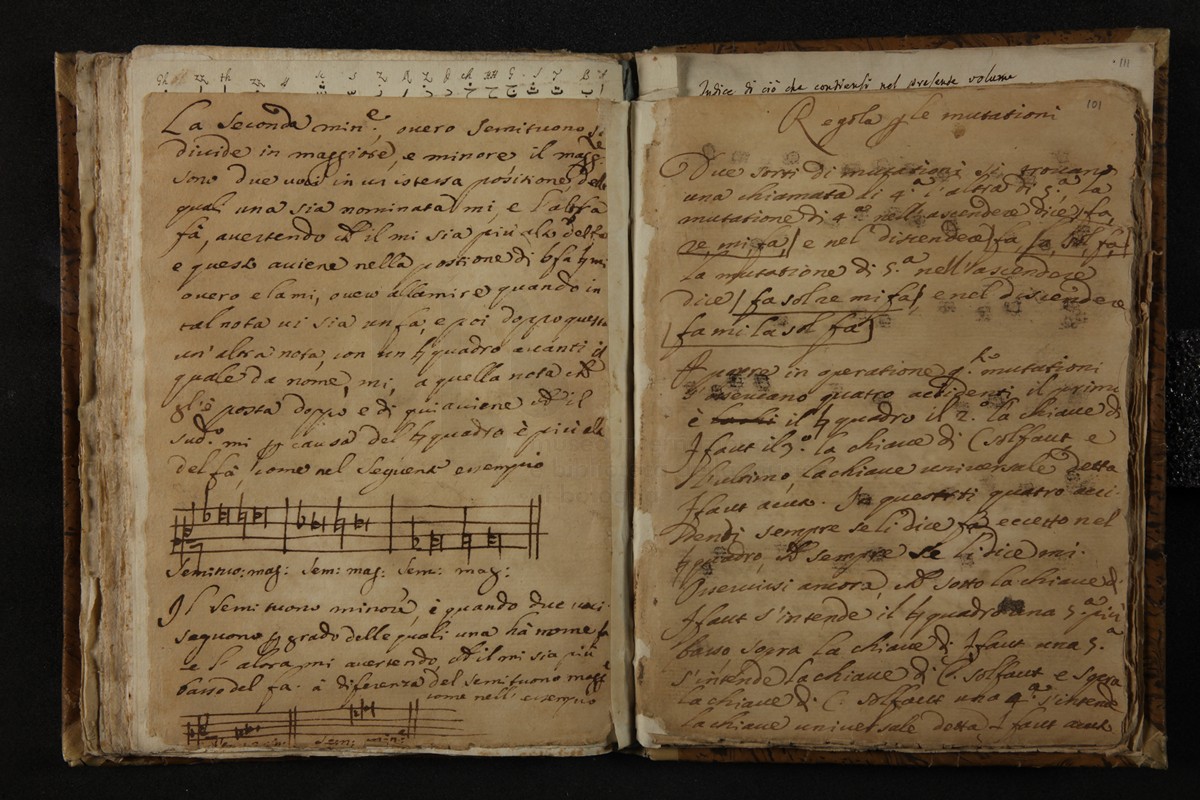 Indice di ciò che contiensi nel presente volume
111
La Seconda min.e, ouero Semituono si
diuide in maggiore, e minore il magg.re
sono due uoci in un istessa positione, delle
quali una sia nominata mi, e l'altra
fà, auertendo ch il mi sia più alto del fa
e questo auiene nella positione di bfa ♮mi
ouero elami, ouero alamire quando in
tal nota ui sia un fa, e poi doppo questa
un'altra nota, con un ♮ quadro auanti il
quale da nome, mi, a quella nota ch
gl'è posta doppo e di qui auiene ch il
sud.o mi p causa del ♮ quadro è più alto
del fà, come nel seguente essempio
Semituo: mag: Sem: mag: Sem: mag:
Il semituono minore, è quando due uoci
seguono grado delle quali una hà nome fa
e l'altra mi auertendo, ch il mi sia più
basso del fa. à diferenza del semituono magg.e
come nell'essempio
Sem: min:
101
Regola p le mutationi
Due sorti di mutationi si trouano
una chiamata di 4.a l'altra di 5.a La
mutatione di 4.a nell'ascendere dice fa,
re, mi, fa, e nel discendere fa, la, sol, fa,
La mutatione di 5.a nell'ascendere
dice fa sol re mi fa, e nel discendere
fa mi la sol fa
A porre in operatione q.te mutationi
si ricercano quatro accidenti il primo
è il ♮ quadro il 2.o la chiaue di
Ffaut il 3.o la chiaue di Csolfaut e
l'ultimo la chiaue uniuersale detta
Ffaut acuto. In questi quatro acci-
denti sempre se li dice fa eccetto nel
♮ quadro, ch sempre se li dice mi.
Osseruisi ancora, ch sotto la chiaue di
Ffaut s'intende il ♮ quadro una 5.a più
basso sopra la chiaue di Ffaut una 5.a
s'intende la chiaue di C. solfaut e sopra
la chiaue di C. solfaut una 4.a s'intende
la chiaue uniuersale detta Ffaut acuto